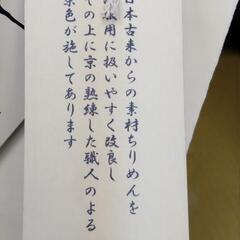 日本古来からの素材ちりめんを
用に扱いやすく改良し
その上に京の熟練した職人のよる
染色が施してあります